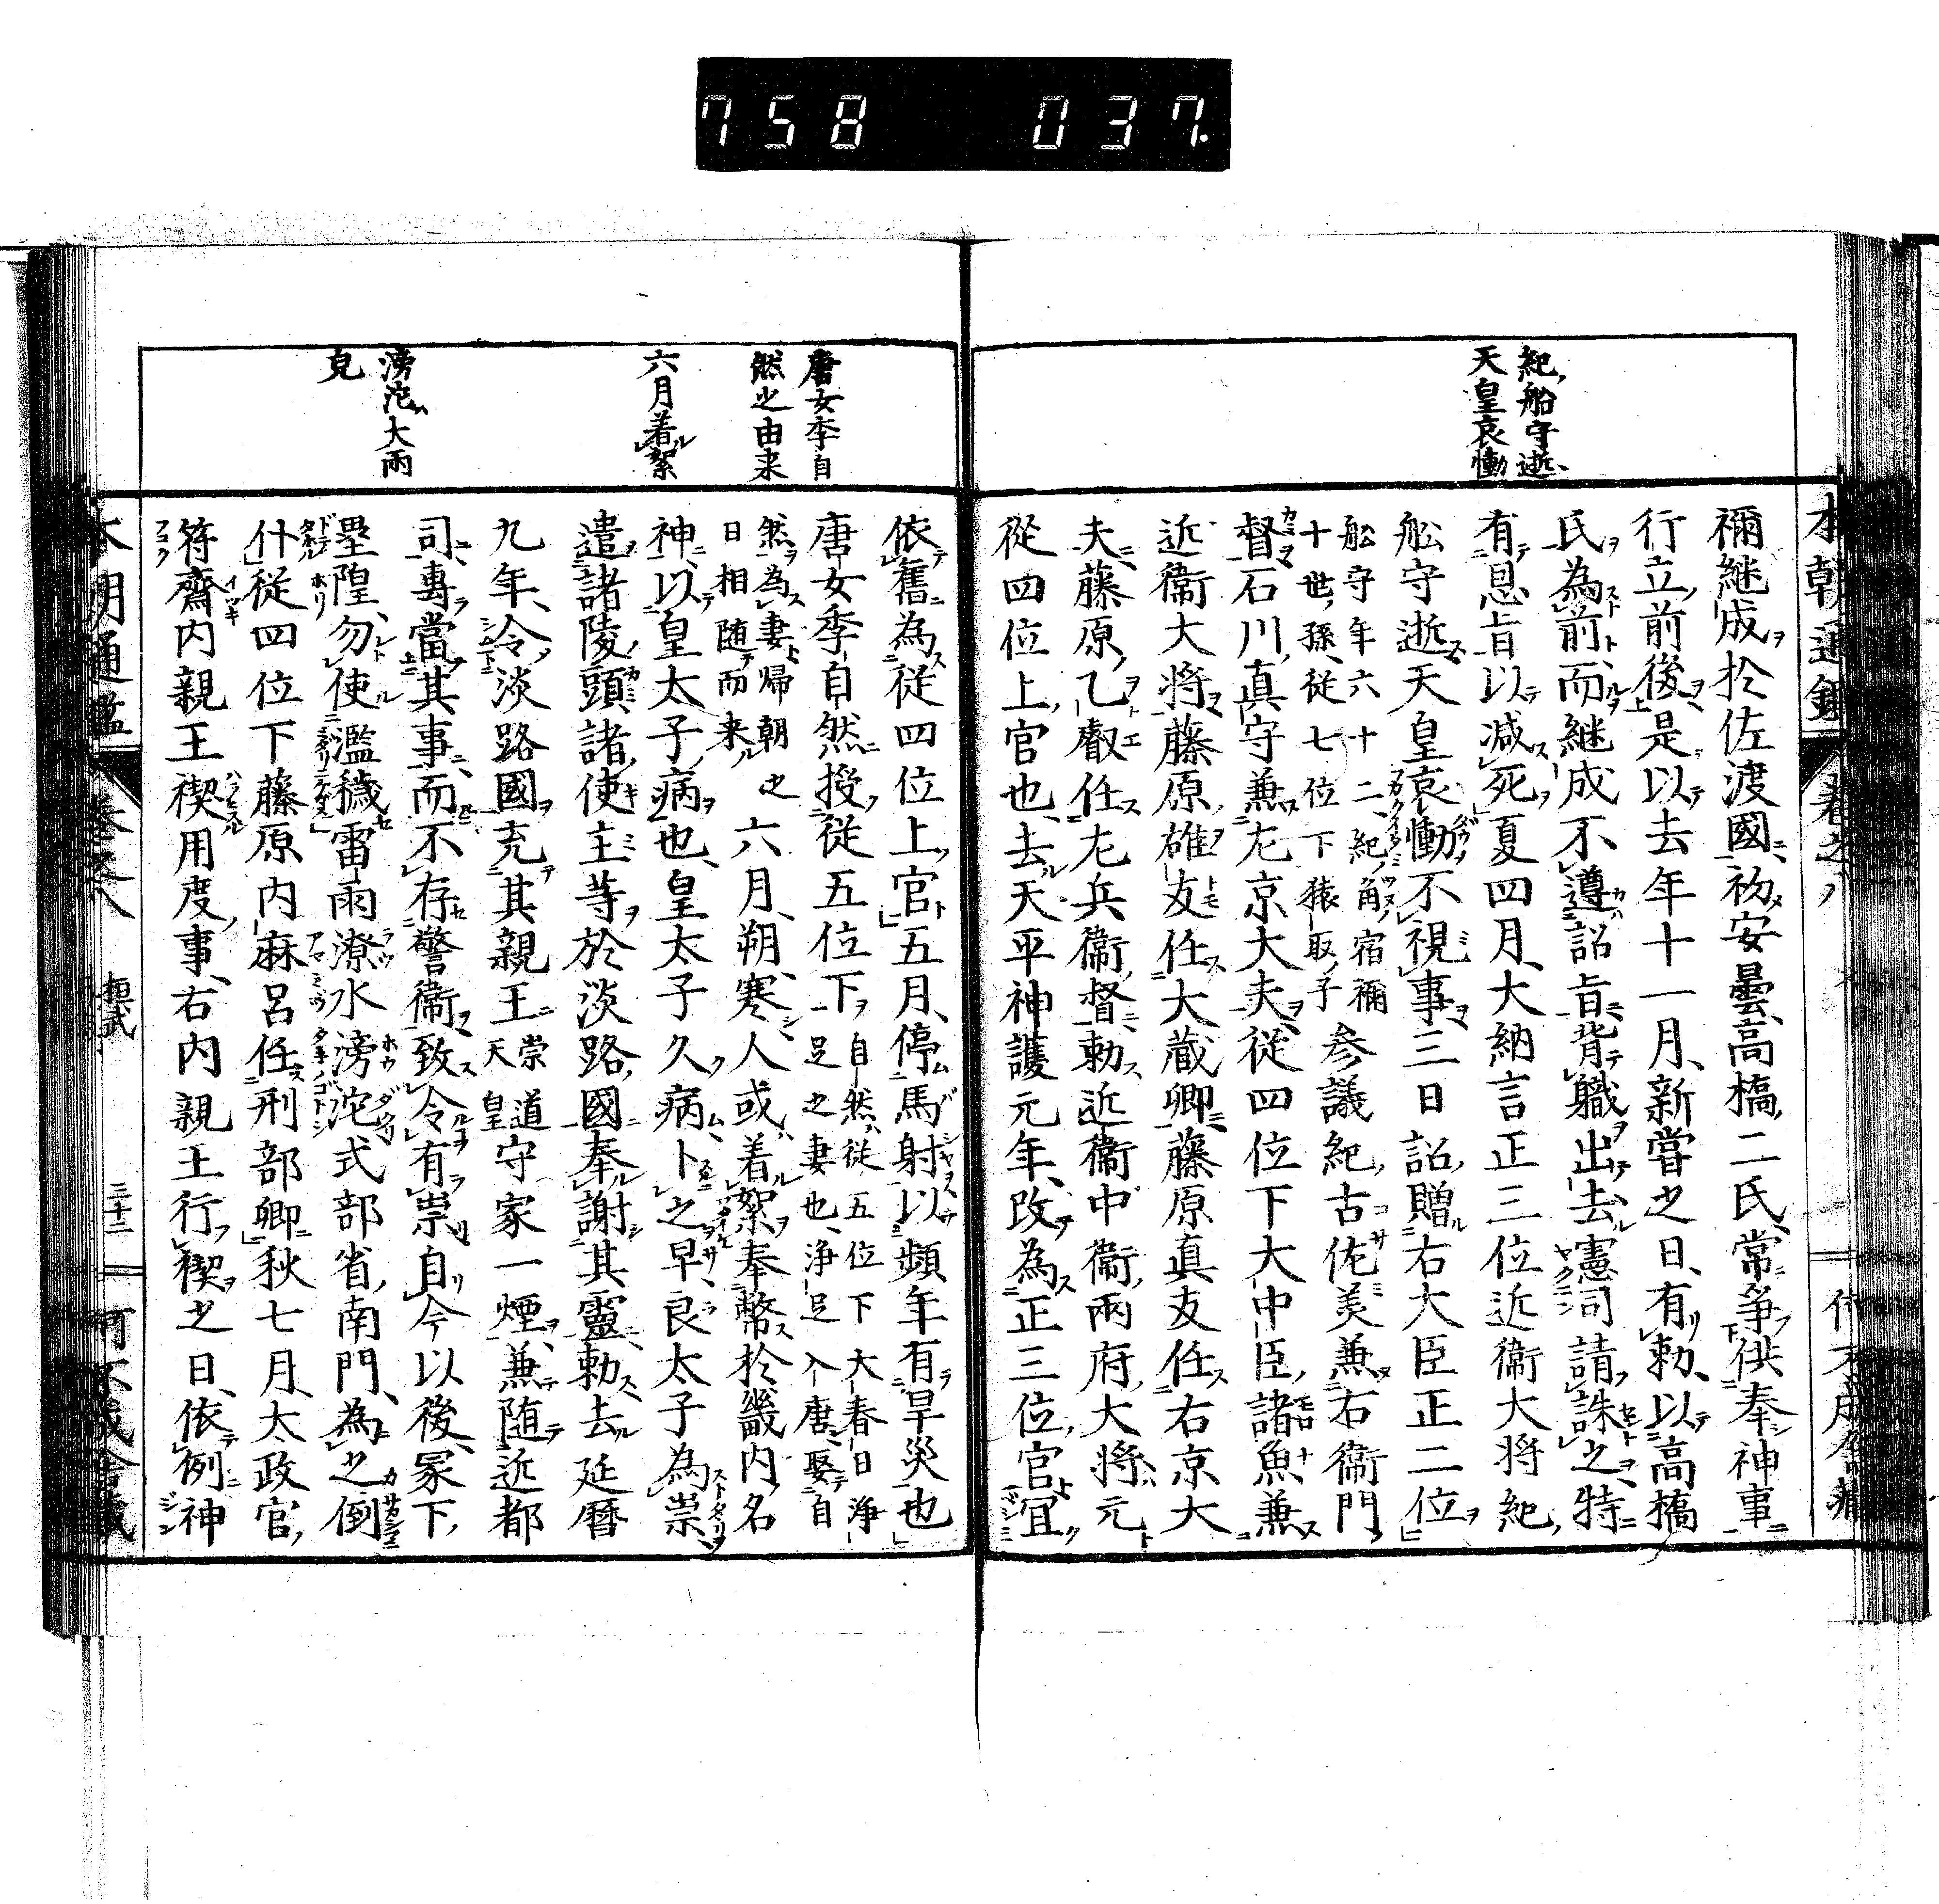 758 037
紀船守逝
天皇哀慟
禰継成於佐渡國初安曇高橋二氏常爭供奉神事
行立前後是以去年十一月新嘗之日有勅以高橋
氏為前而継成不遵詔旨背職出去憲司請誅之特
有恩旨以減死夏四月大納言正三位近衞大将紀
舩守逝天皇哀慟不視事三日詔贈右大臣正二位
舩守年六十二紀角宿禰
十世孫従七位下猿取子
参議紀古佐美兼右衞門
督石川真守兼左京大夫従四位下大中臣諸魚兼
近衞大将藤原雄友任大蔵卿藤原真友任右京大
夫藤原乙叡任左兵衞督勅近衞中衞兩府大将元
從四位上官也去天平神護元年改為正三位官宜
唐女李自
然之由来
六月着絮
滂沱大雨
皃
依舊為從四位上官五月停馬射以頻年有旱災也
唐女李自然授從五位下
自然従五位下大春日浄
足之妻也浄足入唐娶自
然為妻帰朝之
日相随而来
六月朔寒人或着絮奉幣於畿内名
神以皇太子病也皇太子久病卜之早良太子為祟
遣諸陵頭諸使主等於淡路國奉謝其靈勅去延曆
九年令淡路國充其親王
崇道
天皇
守家一煙兼随近都
司專當其事而不存警衞致令有祟自今以後冢下
塁隍勿使濫穢雷雨潦水滂沱式部省南門為之倒
什従四位下藤原内麻呂任刑部卿秋七月太政官
符齋内親王禊用度事右内親王行禊之日依例神
本朝通鑑 巻之八 桓武 三十二